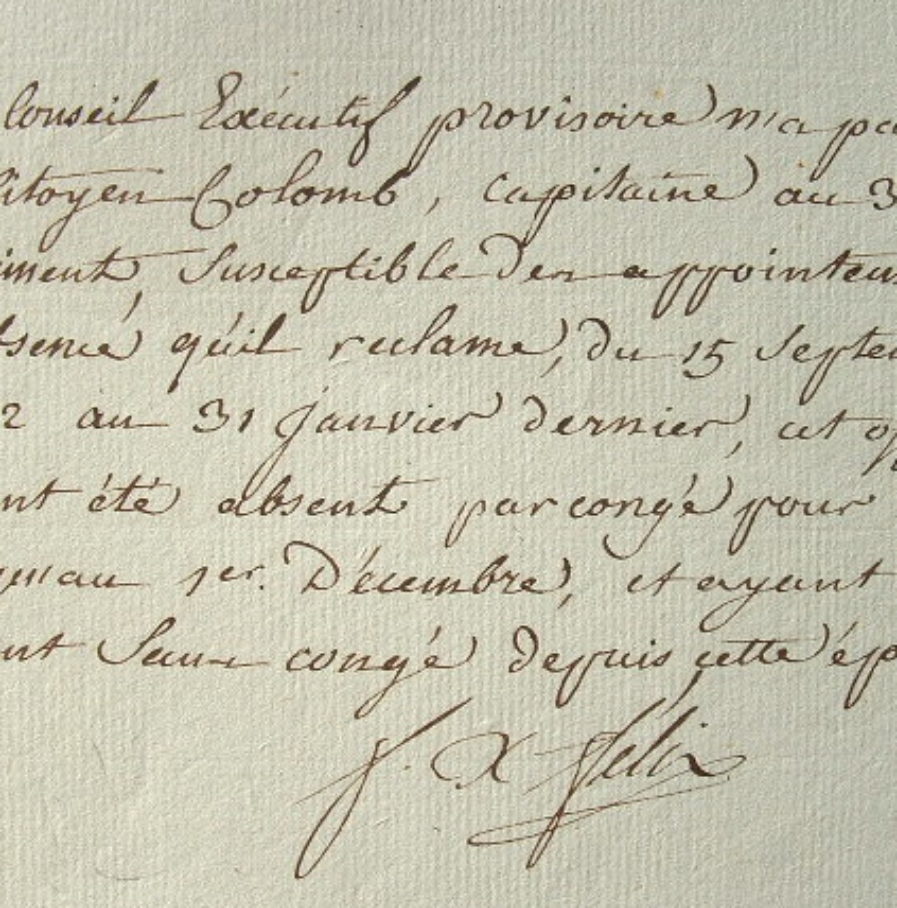 Conseil Exécutif provisoire m'a pa
Citoyen Colomb, capitaine au 3
iment, Susceptible des appointem
bsence qu'il reclame, du 15 Septem
2 au 31 Janvier dernier, cet of
nt été absent par congé pour
qu'au 1er. Décembre, et ayant
nt Sans congé depuis cette ép
f. X Félix